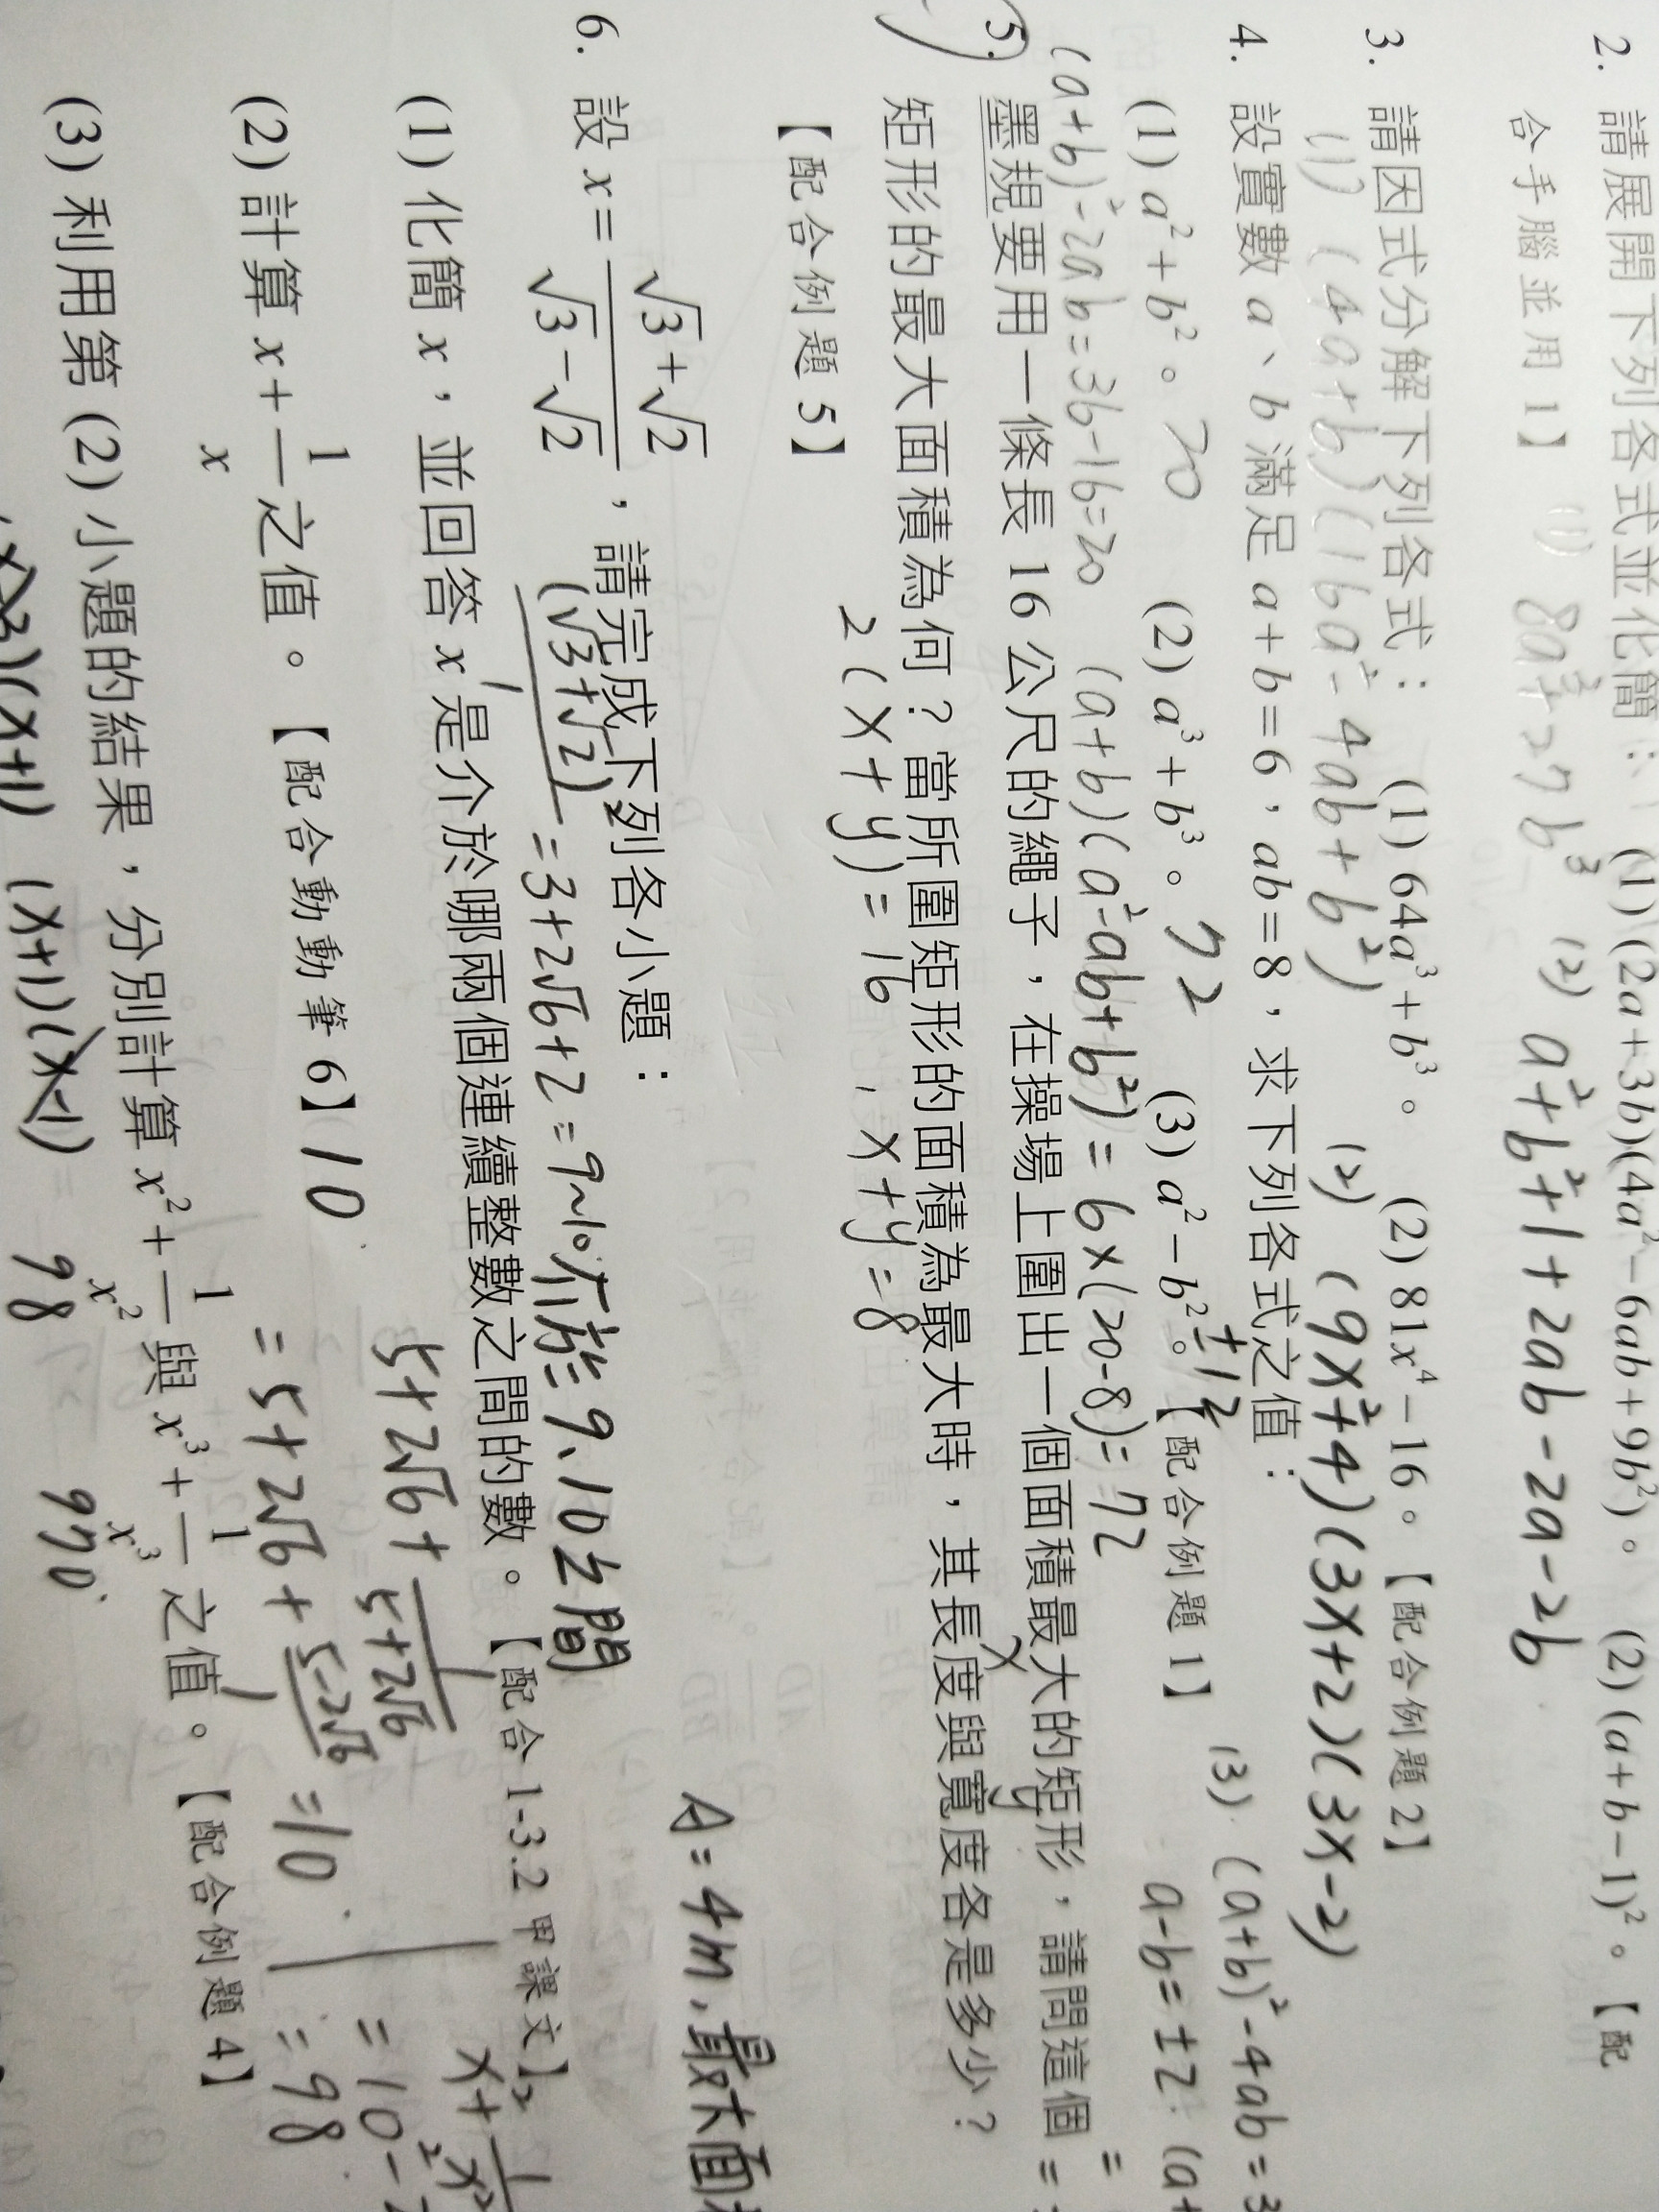 2. 請展開下列各式並化簡：(1) (2a+3b)(4a²−6ab+9b²)。 (2) (a+b−1)²。【配
合手腦並用 1】 (1) 8a³+27b³ (2) a²+b²+1+2ab−2a−2b
3. 請因式分解下列各式： (1) 64a³+b³。 (2) 81x⁴−16。【配合例題 2】
(1) (4a+b)(16a²−4ab+b²) (2) (9x²+4)(3x+2)(3x−2)
4. 設實數 a、b 滿足 a+b=6，ab=8，求下列各式之值：
(3) (a+b)²−4ab=3
(1) a²+b²。 20 (2) a³+b³。 72 (3) a²−b²。 ±12 【配合例題 1】
a−b=±2. (a+
(a+b)²−2ab=36−16=20 (a+b)(a²−ab+b²)=6×(20−8)=72
5. 墨規要用一條長 16 公尺的繩子，在操場上圍出一個面積最大的矩形，請問這個
x y
矩形的最大面積為何？當所圍矩形的面積為最大時，其長度與寬度各是多少？
2(x+y)=16, x+y=8
【配合例題 5】
A=4m, 最大面
6. 設 x=(√3+√2)/(√3−√2)，請完成下列各小題：
(√3+√2)²/1=3+2√6+2=9~10.介於9、10之間
(1) 化簡 x，並回答 x 是介於哪兩個連續整數之間的數。【配合 1-3.2 甲課文】
5+2√6+1/(5+2√6)
x²+1/x²
(2) 計算 x+1/x 之值。【配合動動筆 6】 10
=5+2√6+5−2√6/1=10
=10−
=98
(3) 利用第 (2) 小題的結果，分別計算 x²+1/x² 與 x³+1/x³ 之值。【配合例題 4】
(x+1)(x−1) 98 970